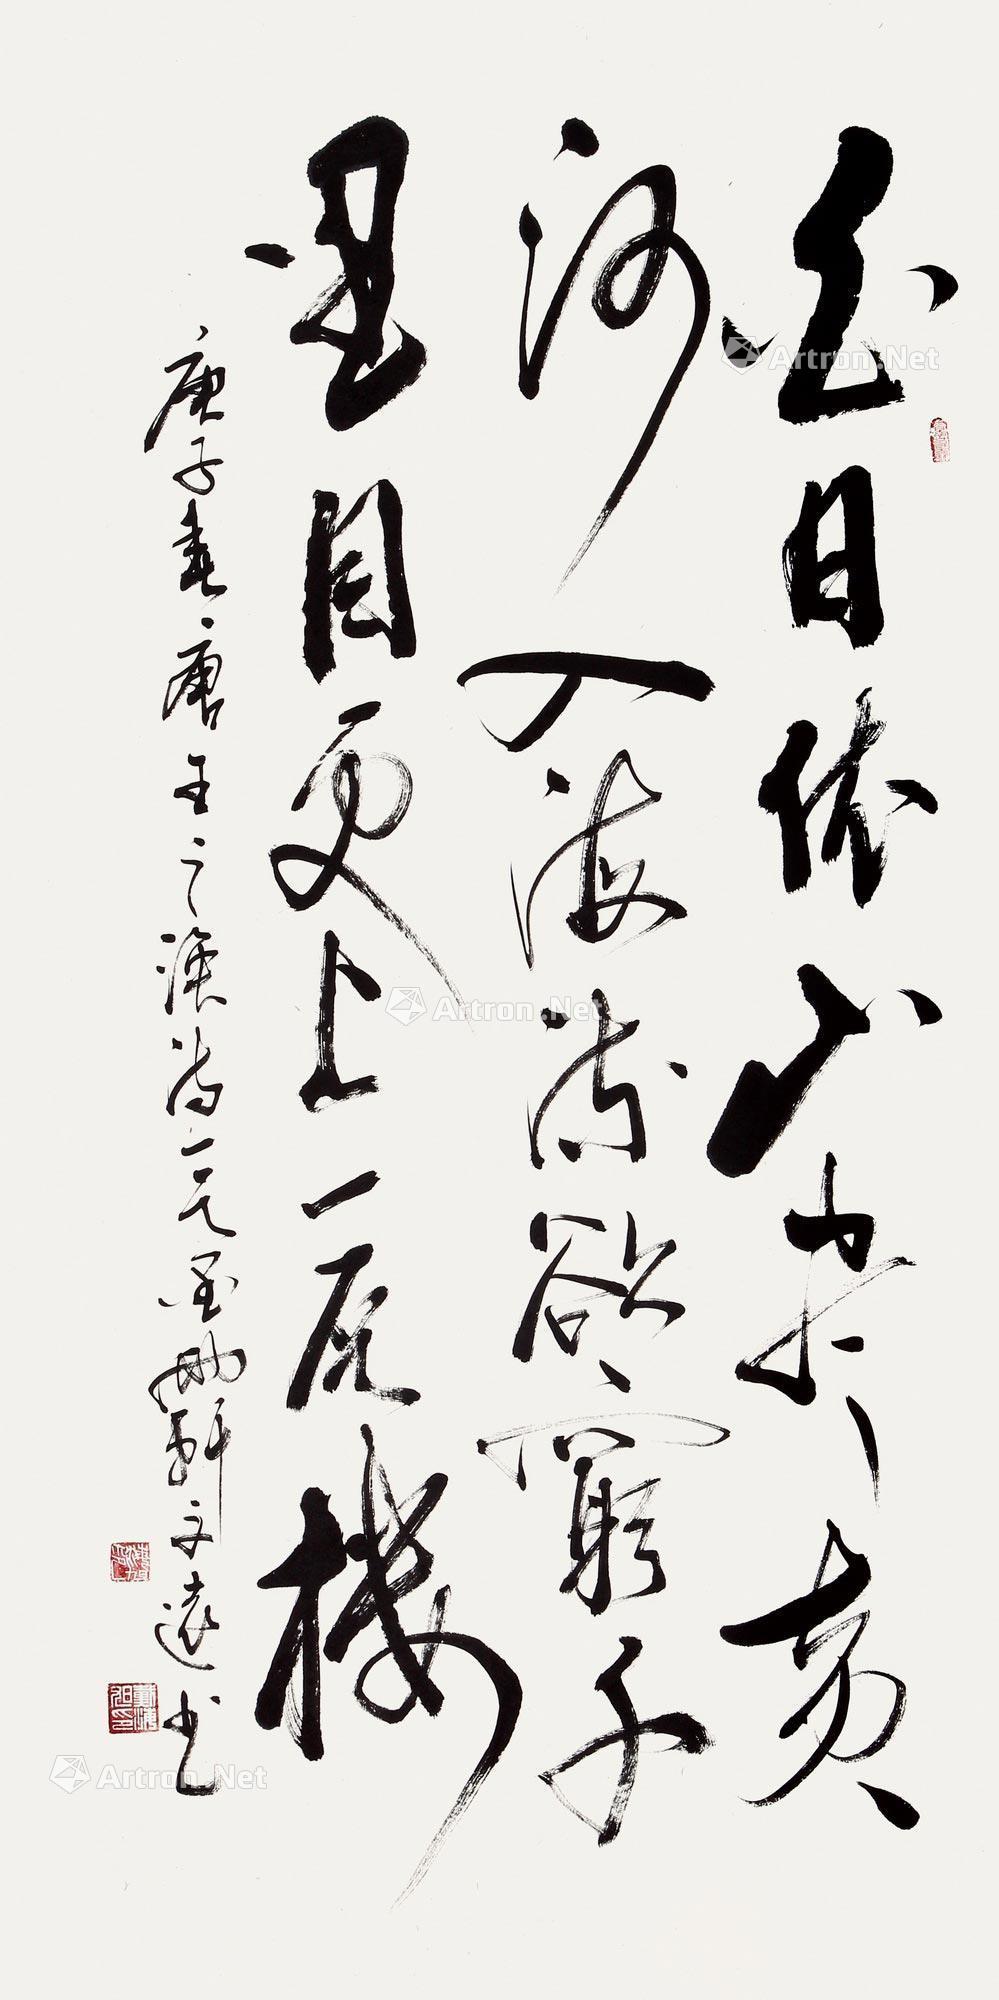 白日依山尽黄
河入海流欲穷千
里目更上一层楼
庚子春唐王之涣诗一首文远书
Artron.Net
Artron.Net
Artron.Net